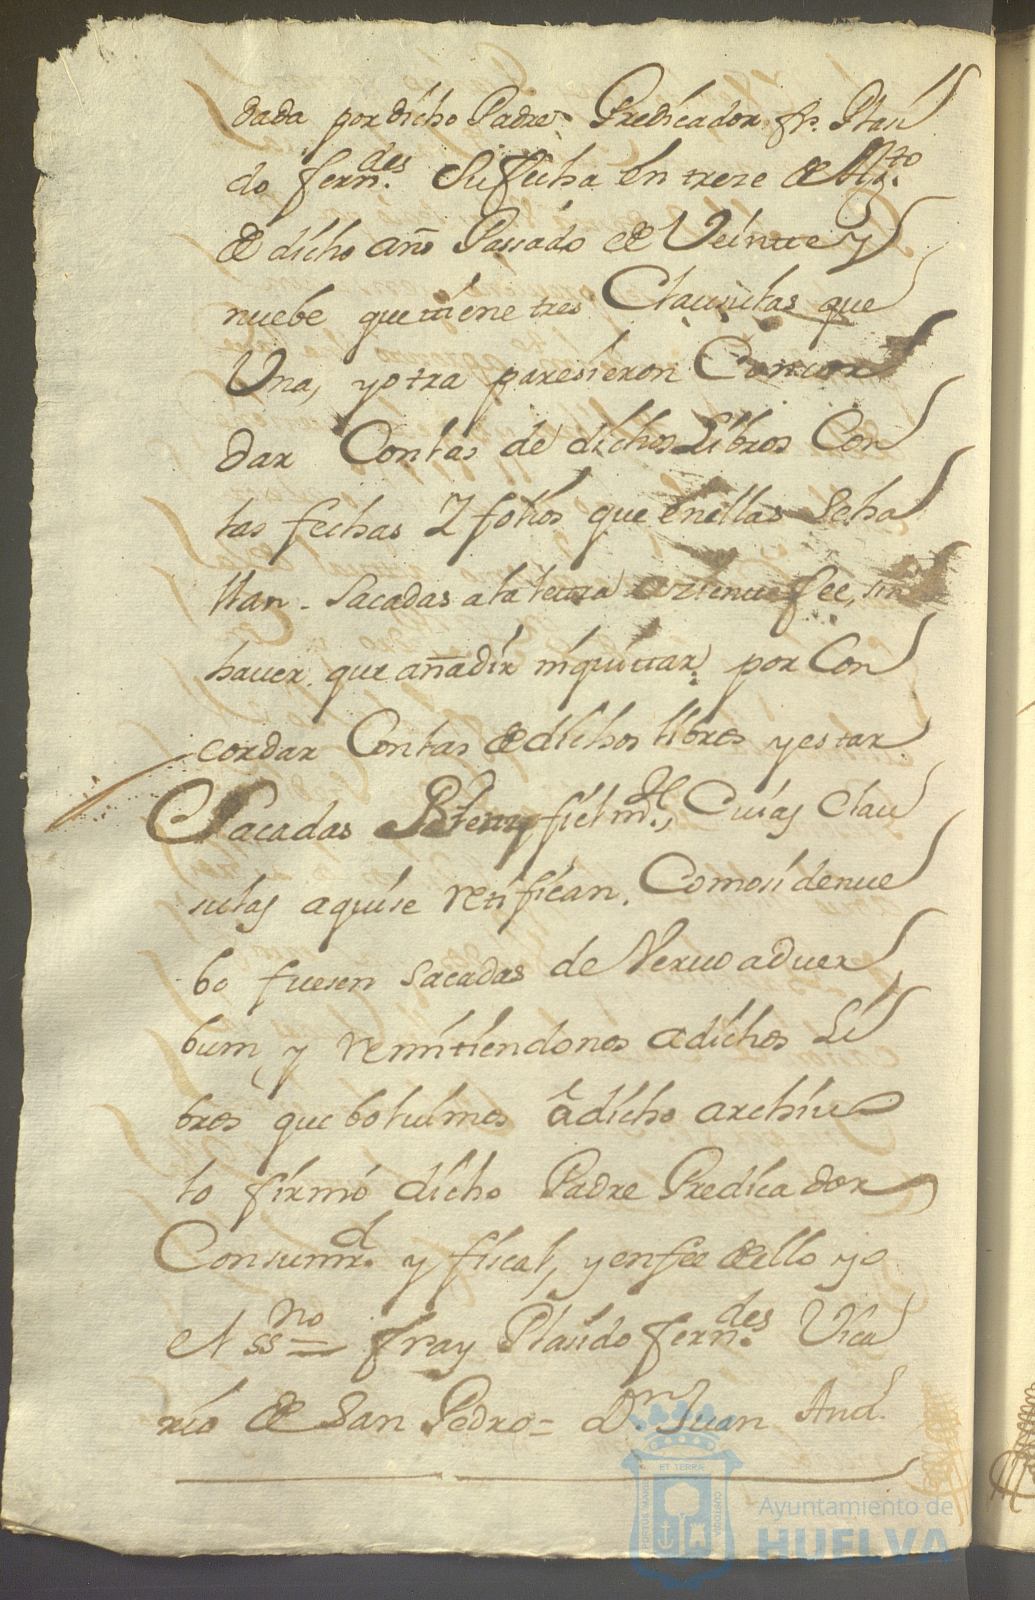 dada por dicho Padre Predicador fr. Plasi
do fern.des Su fecha en trese de Ag.to
de dicho año Passado de Veinue y
nuebe que tiene tres Clausulas que
Una, y otra paresieron Concor
dar Con las de dichos Libros Con
las fechas 7 folios que enellas Seha
llan. Sacadas ala letra fee, sin
hauer que añadir niquittar por Con
cordar Con las de dichos libros y estar
Sacadas fielm.te, Cuias Clau
sulas aquise retifican. Comosi denue
bo fuesen sacadas de Veruo aduer
bum y remitiendonos adichos Li
bros que bolui mos à dicho archiuo
lo firmó dicho Padre Predicador
y fiscal, y enfee dello yo
el ss.no = fray Plasido fern.des Vica
rio de San Pedro = D.n Juan And.
PORTUS MARIS
ET TERRÆ
CUSTODIA
Ayuntamiento de
HUELVA